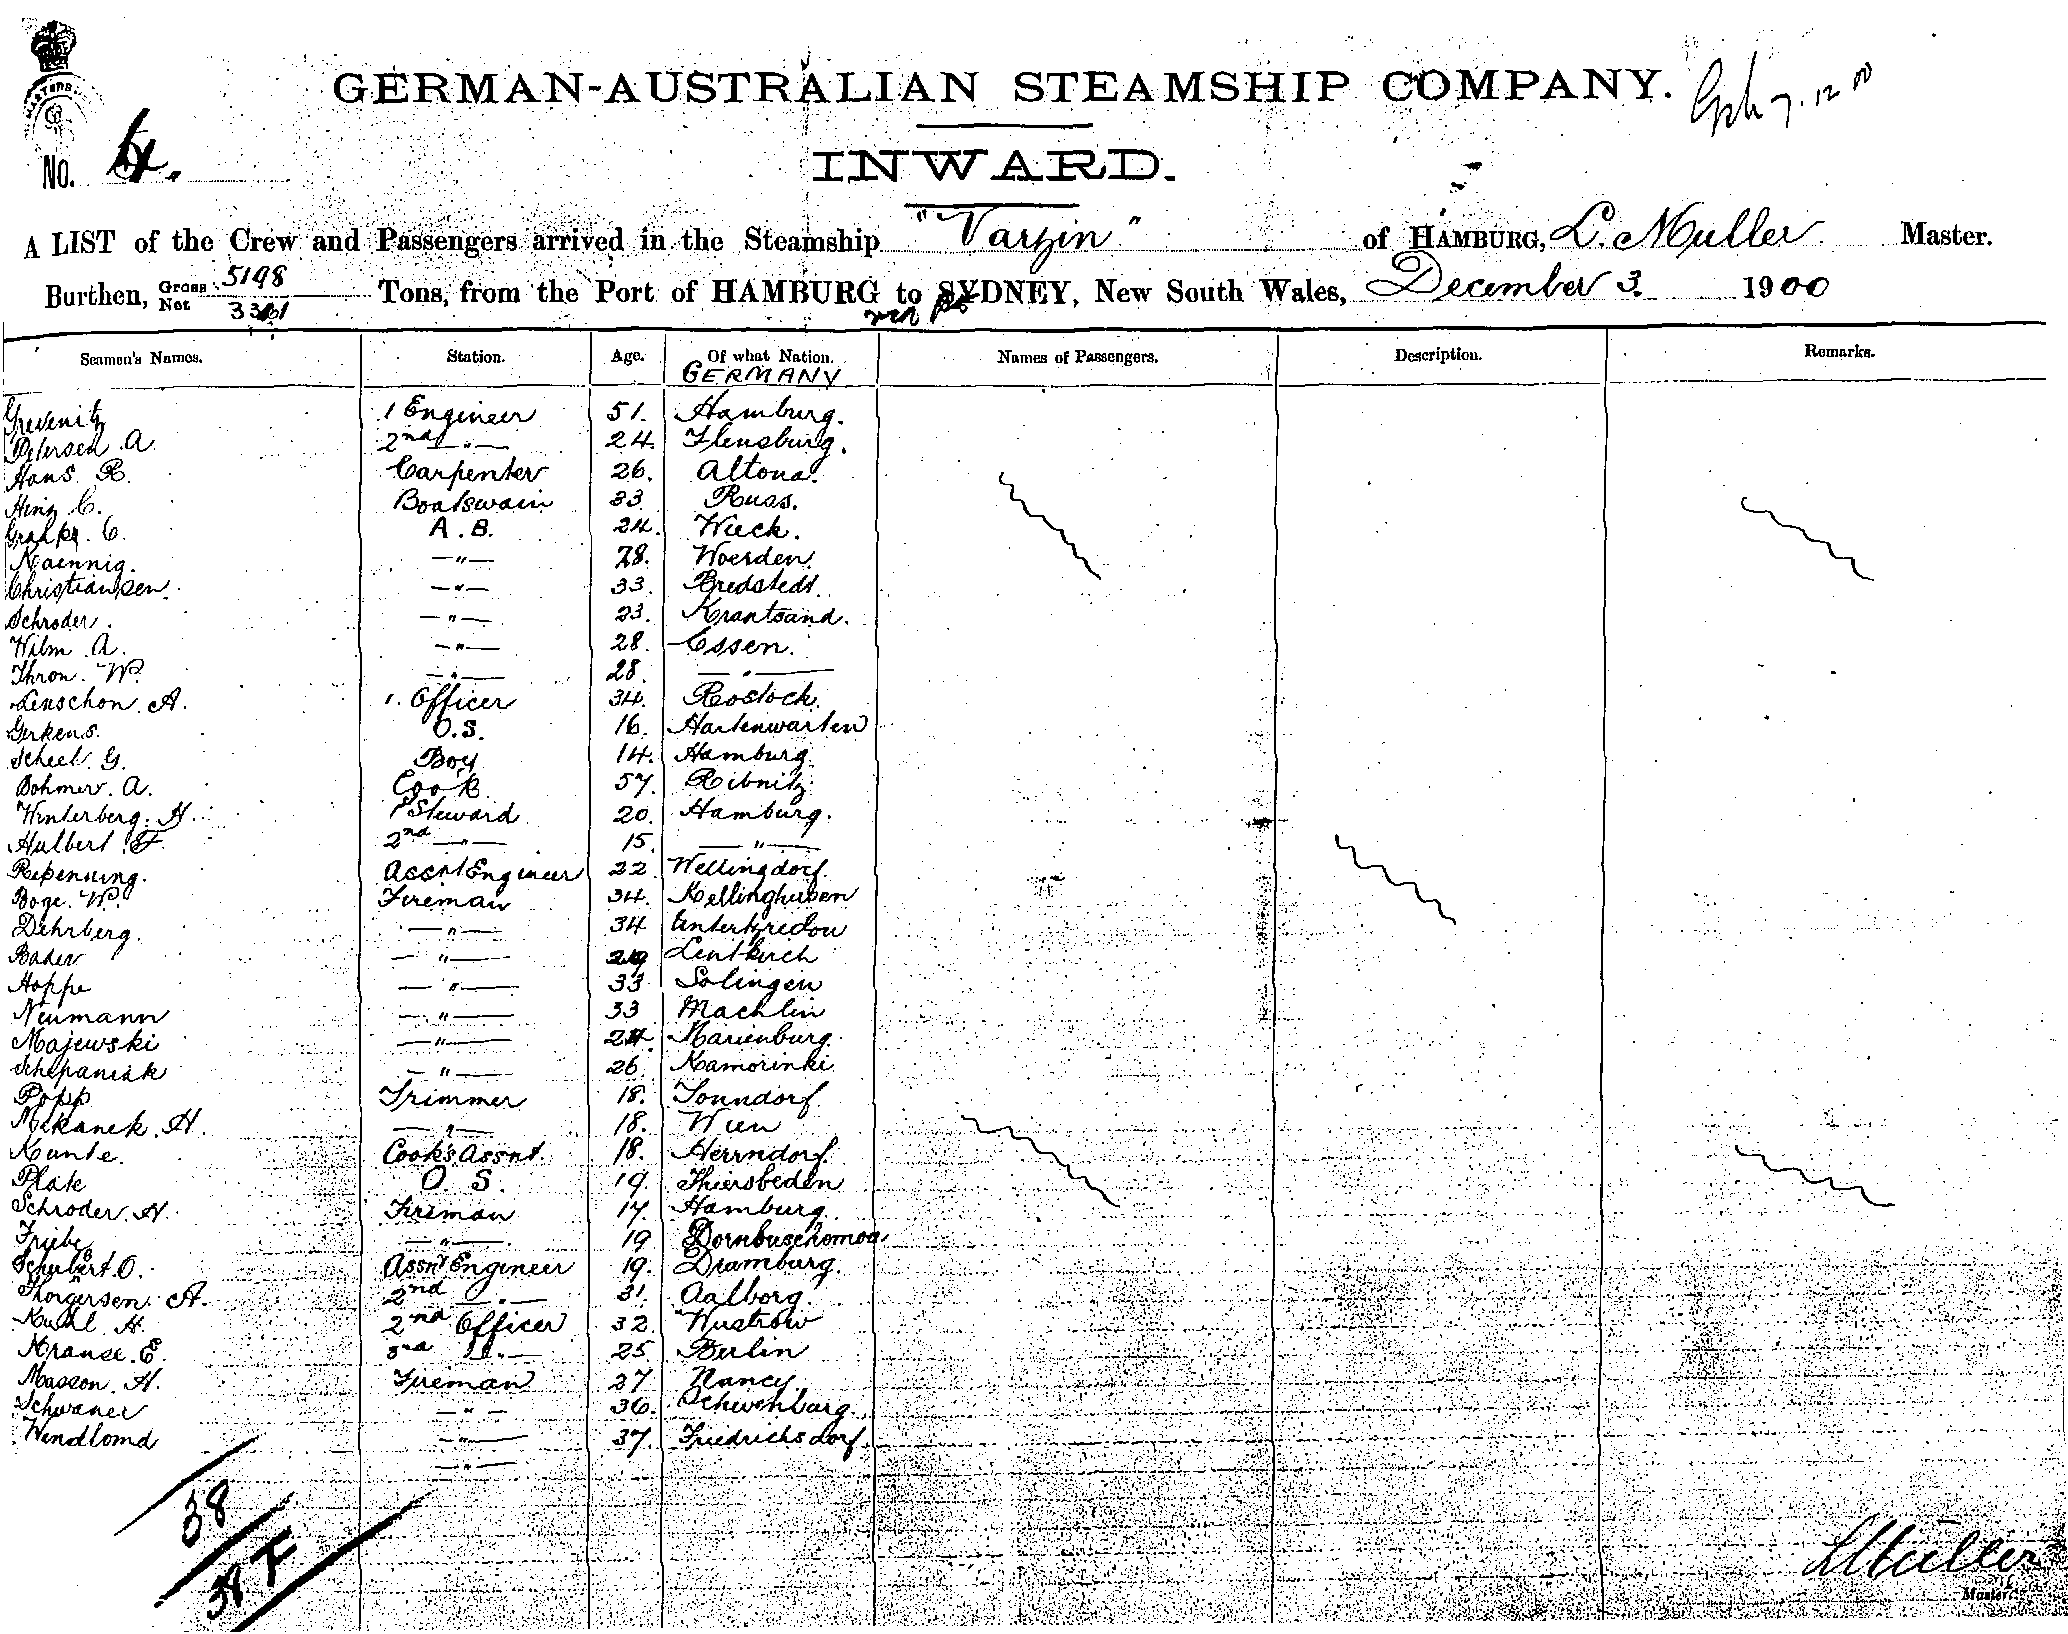 GERMAN-AUSTRALIAN STEAMSHIP COMPANY.
7.12.00
No. 4.
INWARD.
A LIST of the Crew and Passengers arrived in the Steamship "Varzin" of HAMBURG, L. Muller Master.
Burthen, Gross 5198 Net 3361 Tons, from the Port of HAMBURG to SYDNEY, New South Wales, December 3. 1900
via
Seamen's Names. Station. Age. Of what Nation. Names of Passengers. Description. Remarks.
GERMANY
Grevenitz 1 Engineer 51. Hamburg.
Petersen A. 2nd —"— 24. Flensburg.
Hans R. Carpenter 26. Altona.
Hinz C. Boatswain 33 Russ.
C. A.B. 24. Wieck.
Kaennig. —"— 28. Woerden.
Christiansen. —"— 33. Bredstedt.
Schroder. —"— 23. Krantsand.
Wilm A. —"— 28. Essen.
Thron. W. —"— 28. —"—
Lenschon. A. 1. Officer 34. Rostock.
Gerkens. O.S. 16. Hartenwarten
Scheel. G. Boy 14. Hamburg.
Bohmer. A. Cook 57. Ribnitz
Winterberg. H. 1 Steward 20. Hamburg.
Hulbert. F. 2nd —"— 15. —"—
Repenning. Assnt Engineer 22. Wellingdorf.
Boge. W. Fireman 34. Kellinghusen
Dehrberg. —"— 34
Bader —"— Leutkirch
Hoppe —"— 33 Solingen
Neumann —"— 33 Machlin
Majewski —"— 24. Marienburg.
Schepaniak —"— 26. Kamorinki
Popp Trimmer 18. Tonndorf
Mekanek. H. —"— 18. Wien
Kunte. Cook's Assnt. 18. Herrndorf.
Plate O S. 19. Thiersbeden
Schroder. H. Fireman 17. Hamburg.
Friebe —"— 19
Schubert. O. Assnt Engineer 19. Dramburg.
Thorgersen. A. 2nd —"— 31. Aalborg.
Kuhl H. 2nd Officer 32. Wustrow
Krause. E. 3rd —"— 25 Berlin
Masson. H. Fireman 27 Nancy
Schwaner —"— 36.
Windlomd —"— 37. Friedrichsdorf.
—"—
38
L Müller
Master.